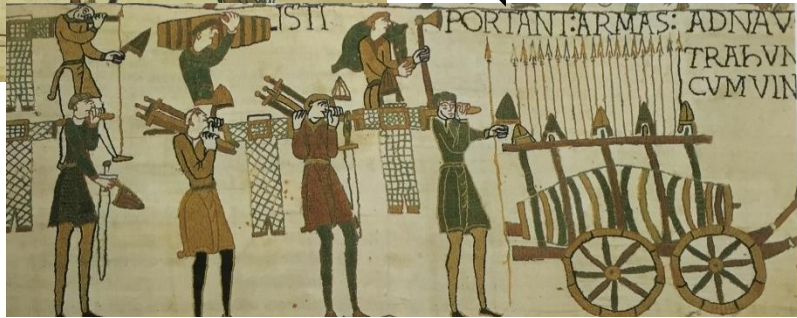 ISTI PORTANT:ARMAS: ADNAV
TRAhVN
CVMVIN